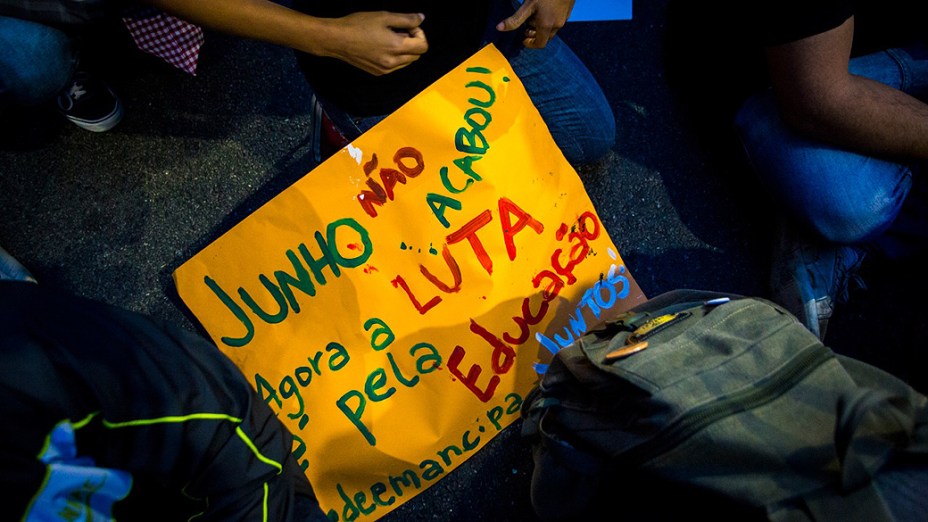 JUNHO NÃO ACABOU!
Agora a LUTA
é pela Educação
redeemancipa
JUNTOS!